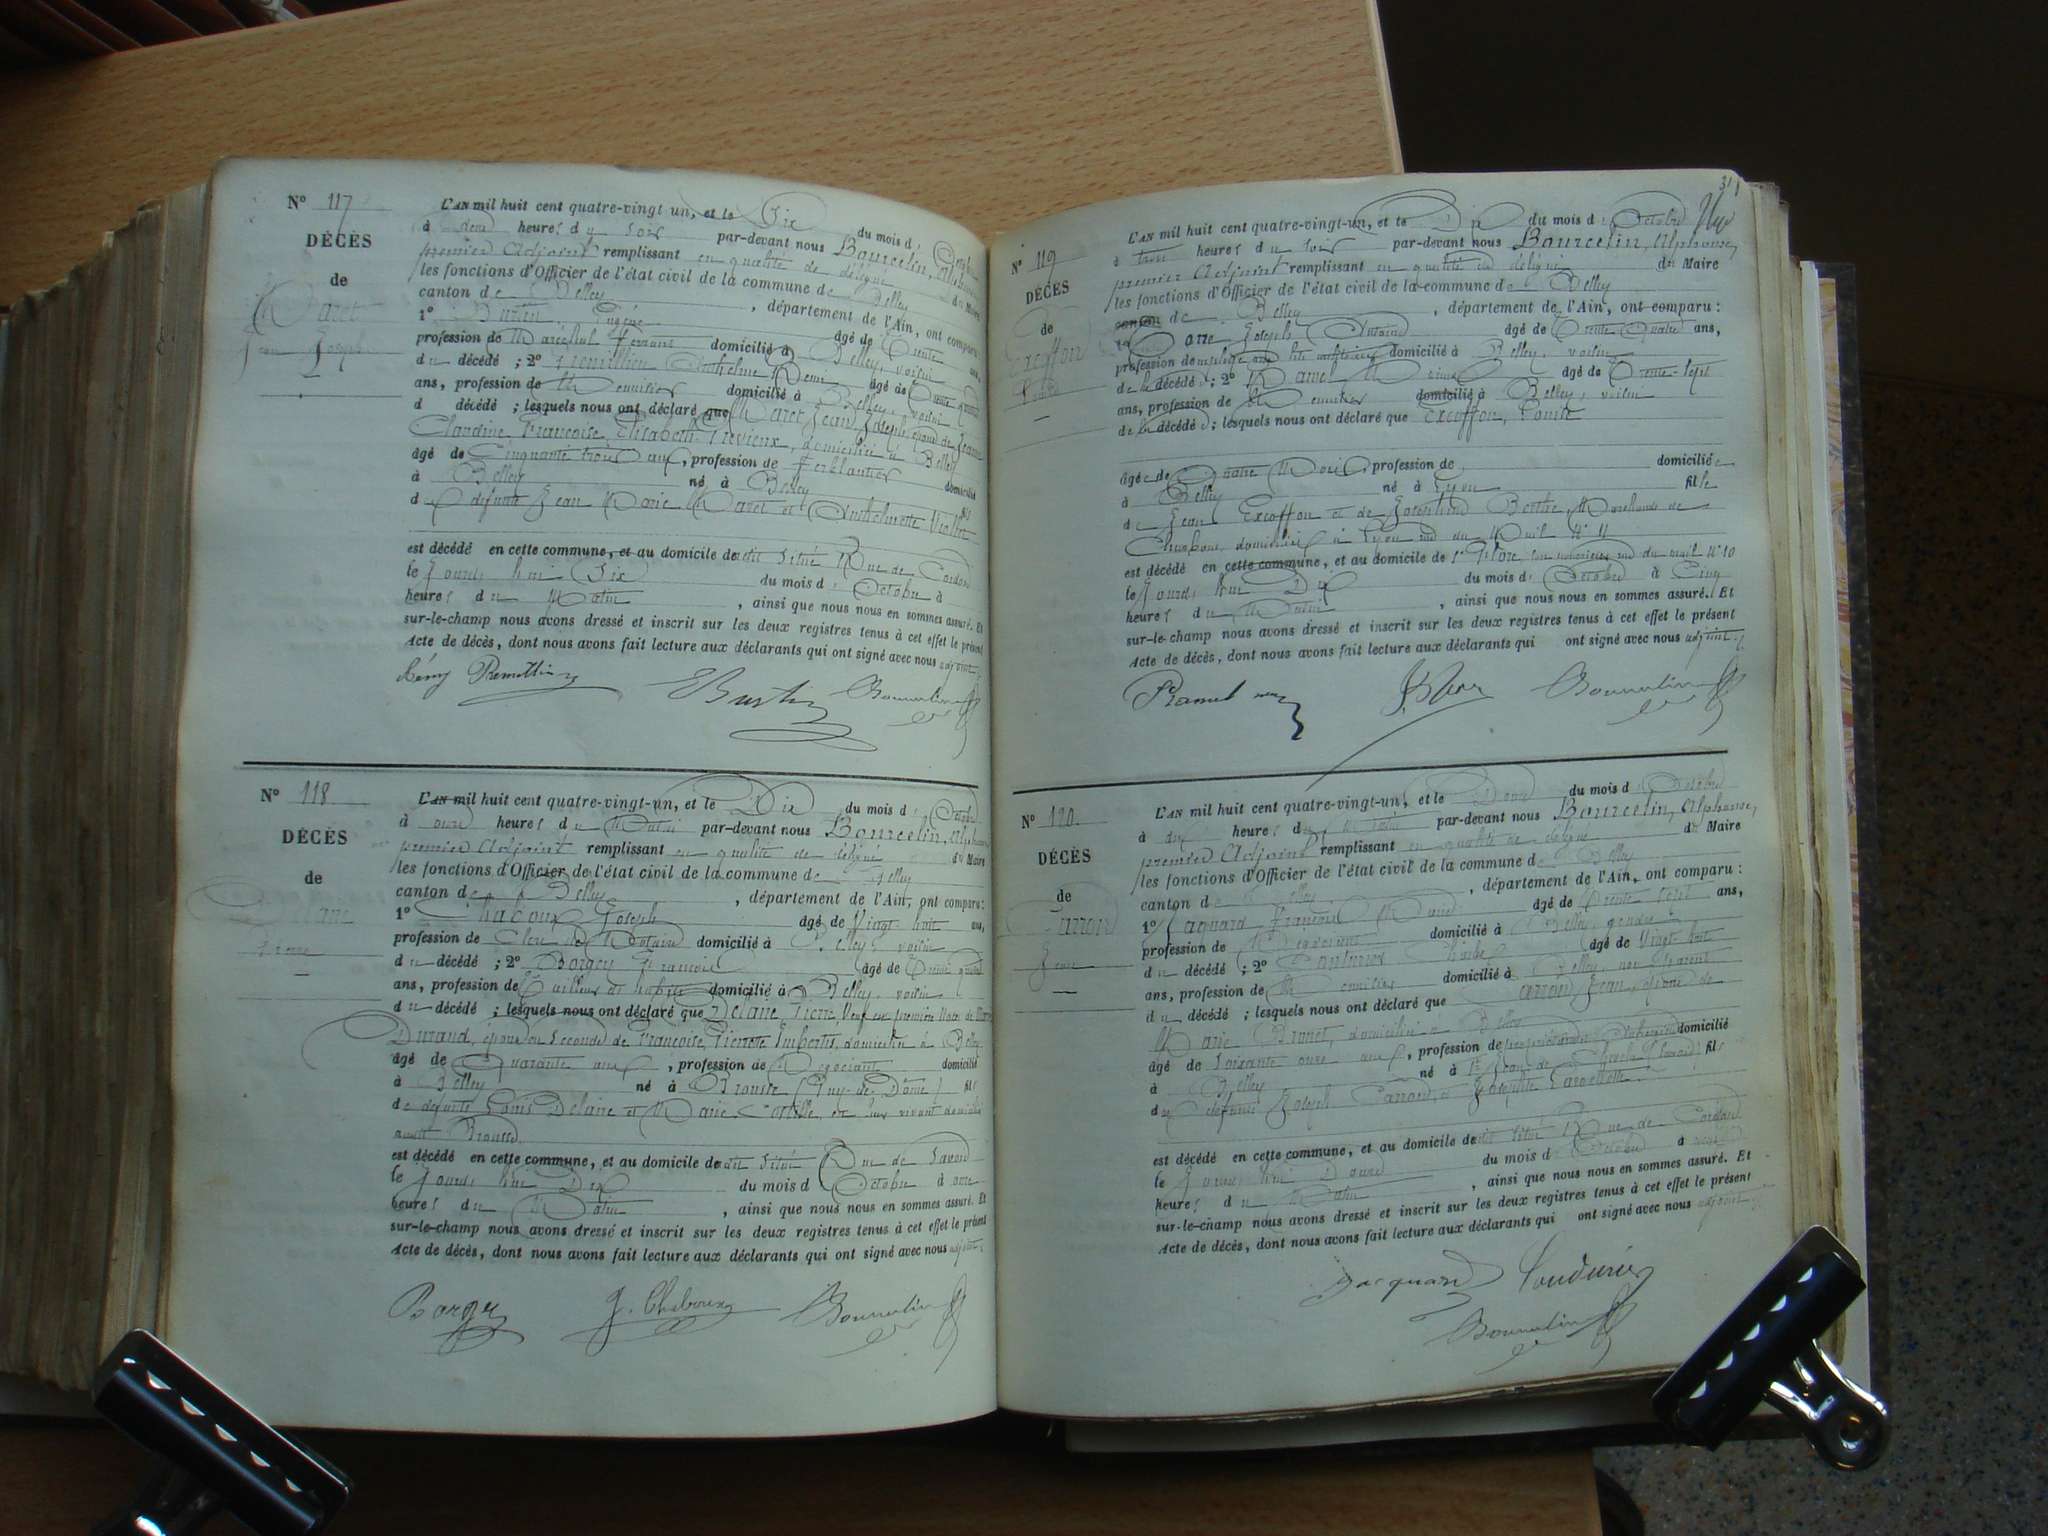 Nº 117
DÉCÈS
de
Maret
Jean Joseph
L'AN mil huit cent quatre-vingt un, et le Six du mois d' Octobre
à deux heures du soir par-devant nous Bourcelin, Alphonse,
premier Adjoint remplissant en qualité de délégué du Maire
les fonctions d'Officier de l'état civil de la commune de Belley
canton de Belley, département de l'Ain, ont comparu:
1º Burtin Eugène âgé de Trente ans,
profession de Maréchal ferrant domicilié à Belley, voisin
du décédé; 2º Premillieu Anthelme Rémi âgé de Trente quatre
ans, profession de Menuisier domicilié à Belley, voisin
d décédé; lesquels nous ont déclaré que Maret Jean Joseph, époux de Jeanne
Claudine Françoise Elisabeth Prévieux, domicilié à Belley
âgé de Cinquante trois ans, profession de Ferblantier domicilié
à Belley né à Belley fils
de défunts Jean Marie Maret et Anthelmette Viollet
est décédé en cette commune, et au domicile du dit situé Rue de Cordon
le Jourd'hui Six du mois d' Octobre à
heures du Matin, ainsi que nous nous en sommes assuré. Et
sur-le-champ nous avons dressé et inscrit sur les deux registres tenus à cet effet le présent
Acte de décès, dont nous avons fait lecture aux déclarants qui ont signé avec nous adjoint.
Rémy Premillieu EBurtin Bourcelin
Nº 118
DÉCÈS
de
Delaire
Pierre
L'AN mil huit cent quatre-vingt-un, et le Dix du mois d' Octobre
à onze heures du Matin par-devant nous Bourcelin, Alphonse
premier Adjoint remplissant en qualité de délégué du Maire
les fonctions d'Officier de l'état civil de la commune de Belley
canton de Belley, département de l'Ain, ont comparu:
1º Chaboux Joseph âgé de Vingt huit ans,
profession de Clerc de Notaire domicilié à Belley, voisin
du décédé; 2º Borgey François âgé de Trente quatre
ans, profession de Tailleur d'habits domicilié à Belley, voisin
du décédé; lesquels nous ont déclaré que Delaire Pierre Veuf en première Noces de Marie
Durand, époux en seconde de Françoise Pierrette Imbertis, domicilié à Belley
âgé de Quarante ans, profession de Négociant domicilié
à Belley né à Brousse (Puy-de-Dôme) fils
de défunts Louis Delaire et Marie, de leur vivant domiciliés
audit Brousse,
est décédé en cette commune, et au domicile du dit situé Rue de Savoie
le Jourd'hui Dix du mois d Octobre à onze
heures du Matin, ainsi que nous nous en sommes assuré. Et
sur-le-champ nous avons dressé et inscrit sur les deux registres tenus à cet effet le présent
Acte de décès, dont nous avons fait lecture aux déclarants qui ont signé avec nous adjoint.
Borgey J. Chaboux Bourcelin
31
Nº 119
DÉCÈS
de
Excoffon
Louise
L'AN mil huit cent quatre-vingt-un, et le Dix du mois d' Octobre
à trois heures du soir par-devant nous Bourcelin, Alphonse,
premier Adjoint remplissant en qualité de délégué du Maire
les fonctions d'Officier de l'état civil de la commune de Belley
canton de Belley, département de l'Ain, ont comparu:
Joseph Antoine âgé de Trente Quatre ans,
profession de domicilié à Belley, voisin
de la décédée; 2º Ramel âgé de Trente-Sept
ans, profession de Menuisier domicilié à Belley, voisin
de la décédée; lesquels nous ont déclaré que Excoffon, Louise
âgée de Quatre Mois, profession de domiciliée
à Belley née à Lyon fille
de Jean Excoffon et de Joséphine Berthe, Marchands de
Charbons, domiciliés à Lyon rue du Mail Nº 11
est décédé en cette commune, et au domicile de
le Jourd'hui Dix du mois d' Octobre à Cinq
heures du Matin, ainsi que nous nous en sommes assuré. Et
sur-le-champ nous avons dressé et inscrit sur les deux registres tenus à cet effet le présent
Acte de décès, dont nous avons fait lecture aux déclarants qui ont signé avec nous adjoint.
Ramel Bourcelin
Nº 120.
DÉCÈS
de
Carron
Jean
L'AN mil huit cent quatre-vingt-un, et le Douze du mois d' Octobre
à dix heures du Matin par-devant nous Bourcelin, Alphonse,
premier Adjoint remplissant en qualité de délégué du Maire
les fonctions d'Officier de l'état civil de la commune de Belley
canton de Belley, département de l'Ain, ont comparu:
1º Jacquard François Marie âgé de Trente sept ans,
profession de Négociant domicilié à Belley, gendre
du décédé; 2º Couturier Charles âgé de Vingt huit
ans, profession de Menuisier domicilié à Belley, non parent
du décédé; lesquels nous ont déclaré que Carron Jean, époux de
Marie Brunet, domicilié à Belley
âgé de Soixante onze ans, profession de domicilié
à Belley né à St Jean de fils
de défunts Joseph Carron et Josephte
est décédé en cette commune, et au domicile du dit situé Rue de Cordon
le Jourd'hui Douze du mois d' Octobre à
heures du Matin, ainsi que nous nous en sommes assuré. Et
sur-le-champ nous avons dressé et inscrit sur les deux registres tenus à cet effet le présent
Acte de décès, dont nous avons fait lecture aux déclarants qui ont signé avec nous adjoint.
Jacquard Couturier
Bourcelin